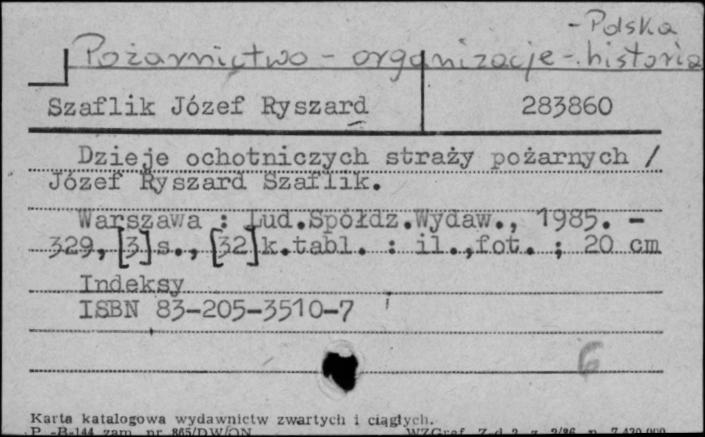 - Polska
Pożarnictwo - organizacje - historia
Szaflik Józef Ryszard 283860
Dzieje ochotniczych straży pożarnych /
Józef Ryszard Szaflik.
Warszawa : Lud.Spółdz.Wydaw., 1985. -
329, [3] s., [32] k.tabl. : il.,fot. ; 20 cm
Indeksy
ISBN 83-205-3510-7
6
Karta katalogowa wydawnictw zwartych i ciągłych.
P.-B-144 zam. nr 865/DW/ON WZGraf. Z-d 2 z. 2/86 n. 7.430.000